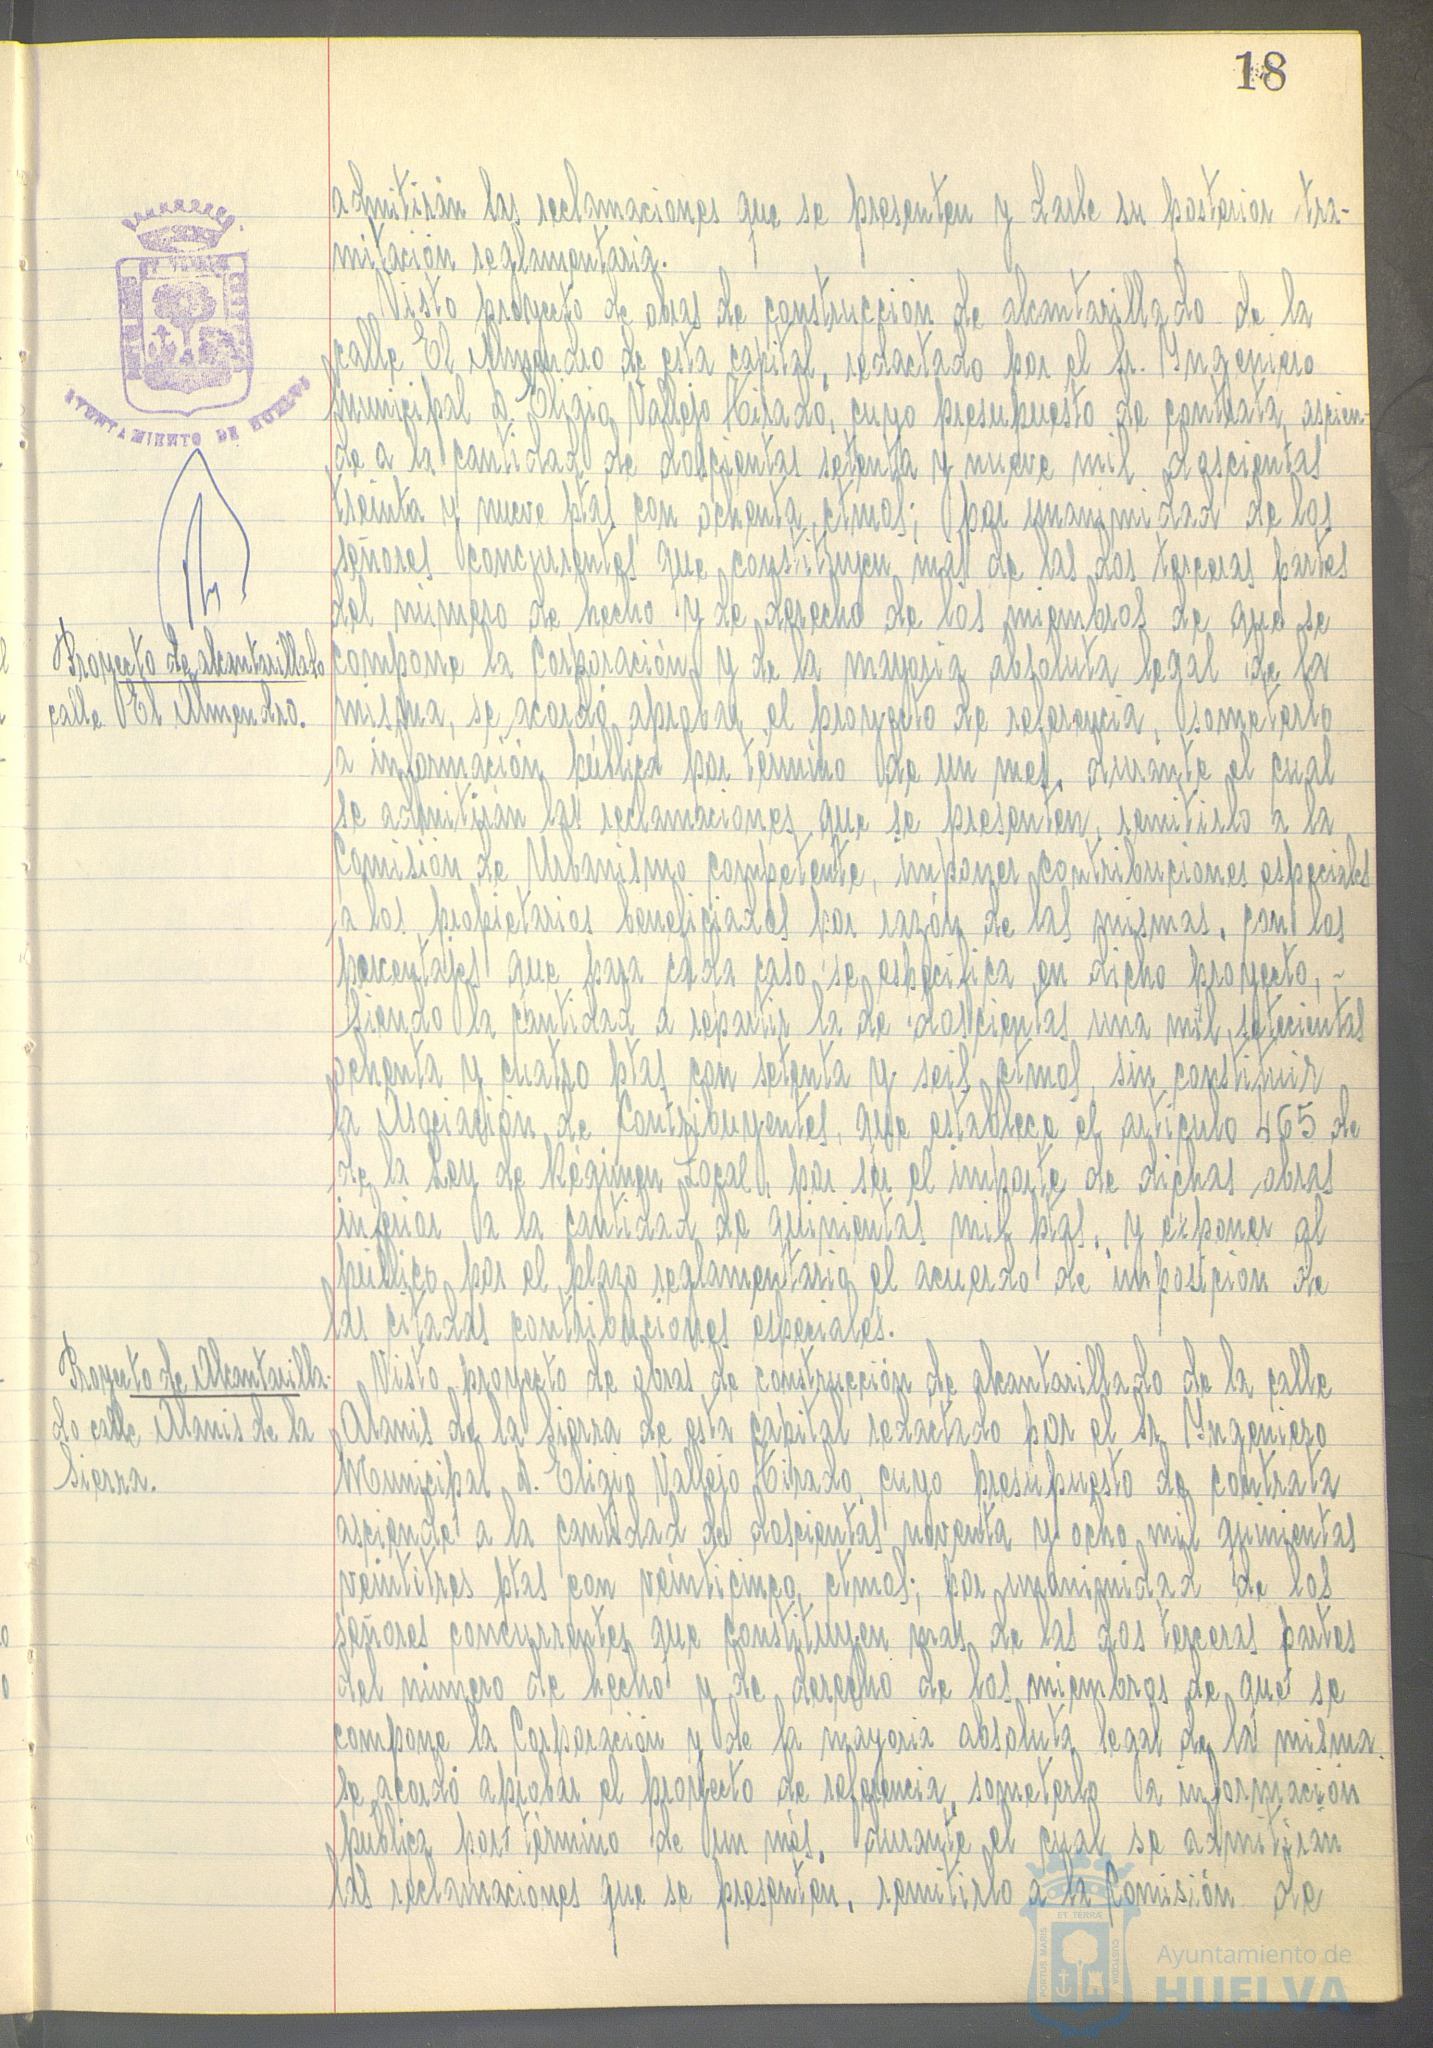 18
admitirán las reclamaciones que se presenten y darle su posterior tra-
mitación reglamentaria.
Visto proyecto de obras de construcción de alcantarillado de la
calle El Almendro de esta capital, redactado por el Sr. Yngeniero
municipal D. Eligio Vallejo Tirado, cuyo presupuesto de contrata ascien-
de a la cantidad de doscientas setenta y nueve mil doscientas
treinta y nueve ptas con ochenta ctmos; por unanimidad de los
señores concurrentes que constituyen mas de las dos terceras partes
del número de hecho y de derecho de los miembros de que se
compone la Corporación y de la mayoria absoluta legal de la
misma, se acordó aprobar el proyecto de referencia, someterlo
a información pública por término de un mes, durante el cual
se admitirán las reclamaciones que se presenten, remitirlo a la
Comisión de Urbanismo competente, imponer contribuciones especiales
a los propietarios beneficiados por razón de las mismas, con los
porcentajes que para cada caso se especifica en dicho proyecto, -
siendo la cantidad a repartir la de doscientas una mil setecientas
ochenta y cuatro ptas con setenta y seis ctmos, sin constituir
la Asociación de Contribuyentes, que establece el articulo 465 de
de la Ley de Régimen Local, por ser el importe de dichas obras
inferior a la cantidad de quinientas mil ptas, y exponer al
público por el plazo reglamentario el acuerdo de imposición de
las citadas contribuciones especiales.
Visto proyecto de obras de construcción de alcantarillado de la calle
Alanis de la Sierra de esta capital redactado por el Sr. Yngeniero
Municipal D. Eligio Vallejo Tirado, cuyo presupuesto de contrata
asciende a la cantidad de doscientas noventa y ocho mil quinientas
veintitres ptas con veinticinco ctmos; por unanimidad de los
señores concurrentes que constituyen mas de las dos terceras partes
del número de hecho y de derecho de los miembros de que se
compone la Corporación y de la mayoria absoluta legal de la misma
se acordó aprobar el proyecto de referencia, someterlo a información
pública por término de un mes, durante el cual se admitirán
las reclamaciones que se presenten, remitirlo a la Comisión de
AYUNTAMIENTO DE HUELVA
Proyecto de alcantarillado
calle El Almendro.
Proyecto de Alcantarilla-
do calle Alanis de la
Sierra.
PORTUS MARIS
ET TERRÆ
CUSTODIA
Ayuntamiento de
HUELVA